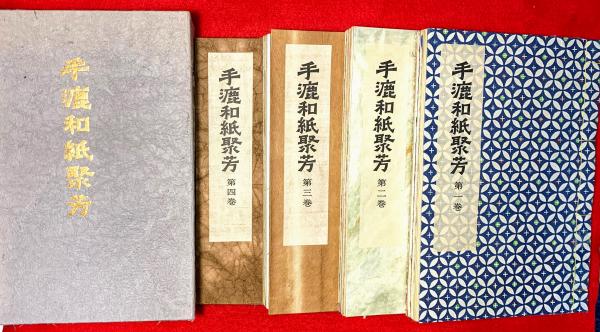 手漉和紙聚芳
手漉和紙聚芳
第四巻
手漉和紙聚芳
第三巻
手漉和紙聚芳
第二巻
手漉和紙聚芳
第一巻